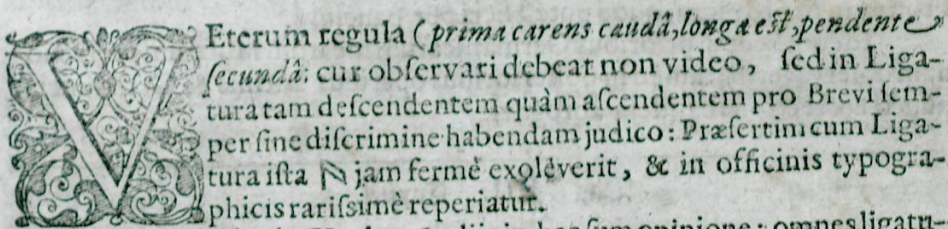 VEterum regula (prima carens caudâ, longa est, pendente
secundâ: cur observari debeat non video, sed in Liga-
tura tam descendentem quàm ascendentem pro Brevi sem-
per sine discrimine habendam judico: Præsertim cum Liga-
tura ista jam fermè exolêverit, & in officinis typogra-
phicis rarissimè reperiatur.
opinione: omnes ligatu-